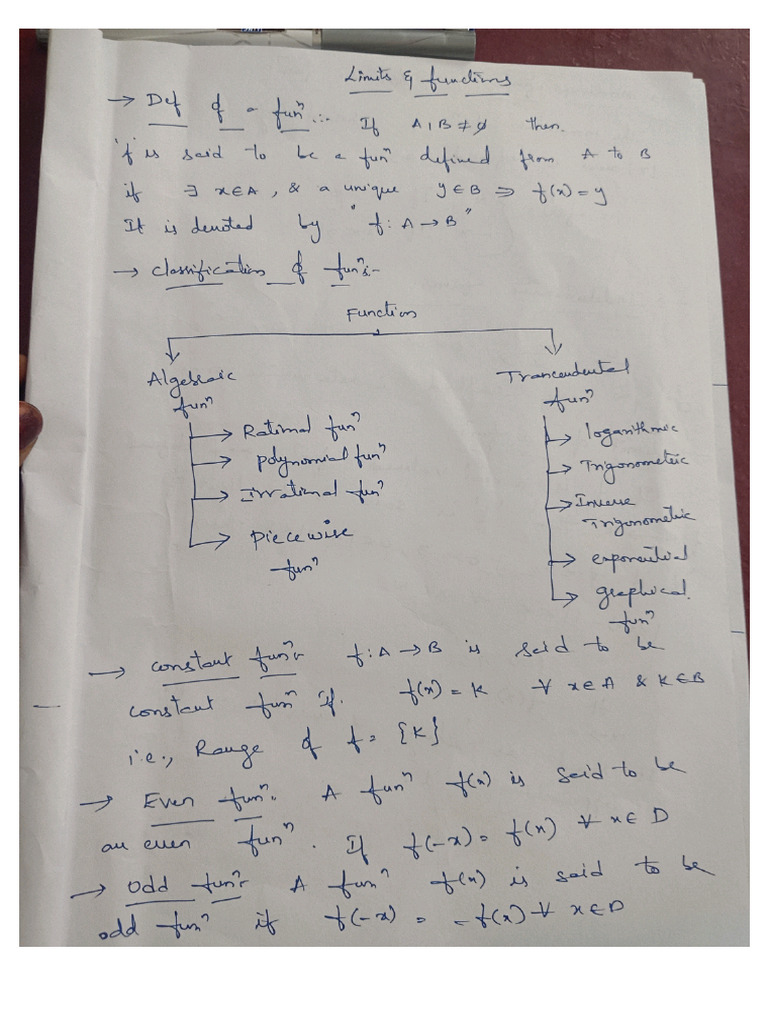 Limits & functions
→ Def of a funⁿ :- If A, B ≠ ∅ then
'f' is said to be a funⁿ defined from A to B
if ∃ x∈A, & a unique y∈B ⇒ f(x)=y
It is denoted by "f: A → B"
→ classification of funⁿs:-
Function
Algebraic funⁿ
→ Rational funⁿ
→ polynomial funⁿ
→ Irrational funⁿ
→ piecewise funⁿ
Trancendental funⁿ
→ logarithmic
→ Trigonometric
→ Inverse Trigonometric
→ exponential
→ graphical funⁿ
→ constant funⁿ:- f: A → B is said to be
constant funⁿ if. f(x) = K ∀ x∈A & K∈B
i.e., Range of f = {K}
→ Even funⁿ:- A funⁿ f(x) is said to be
an even funⁿ. If f(-x) = f(x) ∀ x∈D
→ odd funⁿ:- A funⁿ f(x) is said to be
odd funⁿ if f(-x) = -f(x) ∀ x∈D